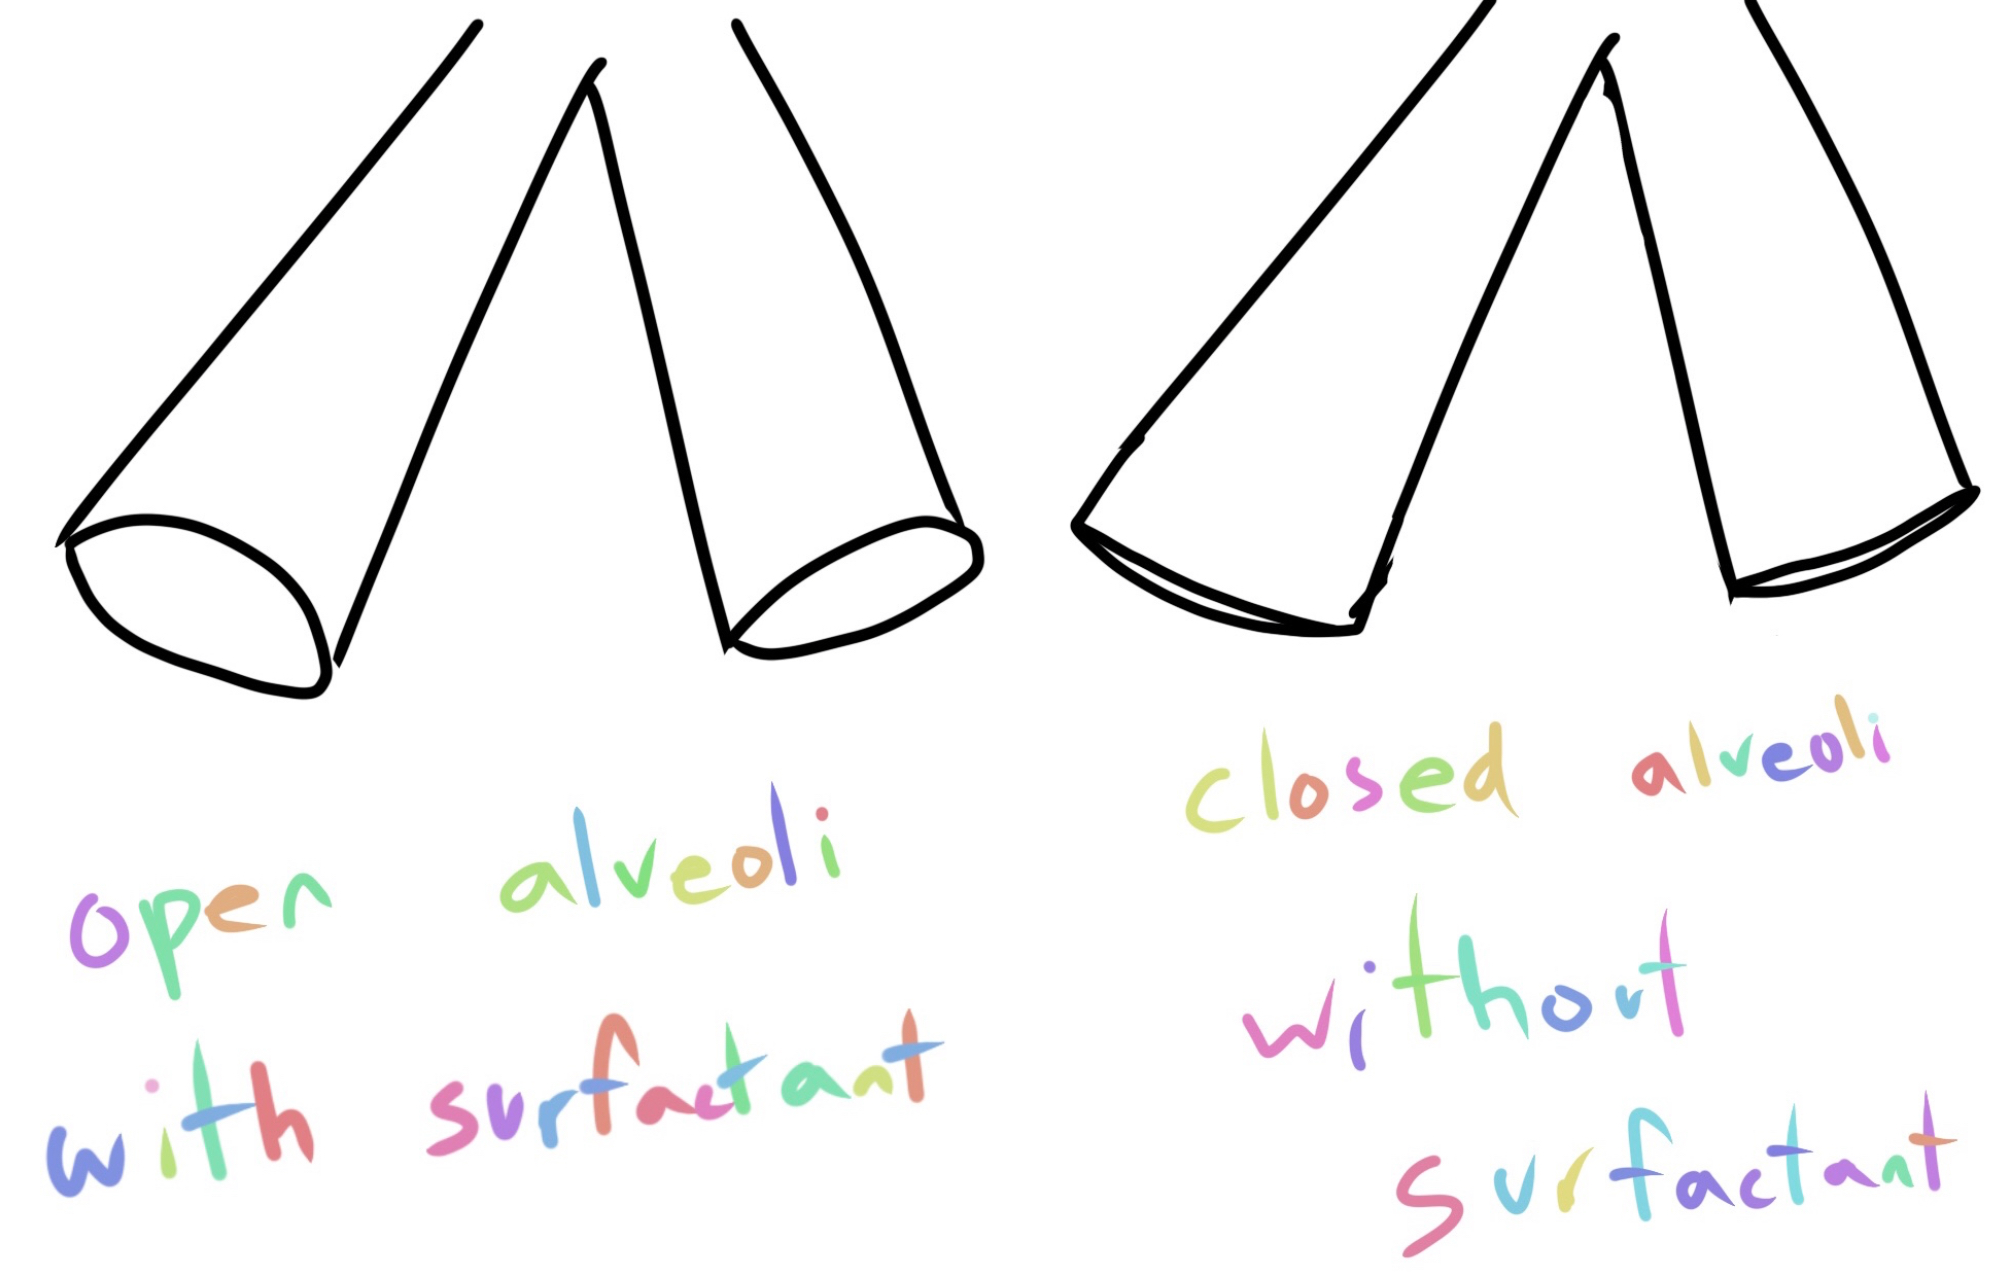 open alveoli
with surfactant
closed alveoli
without
surfactant